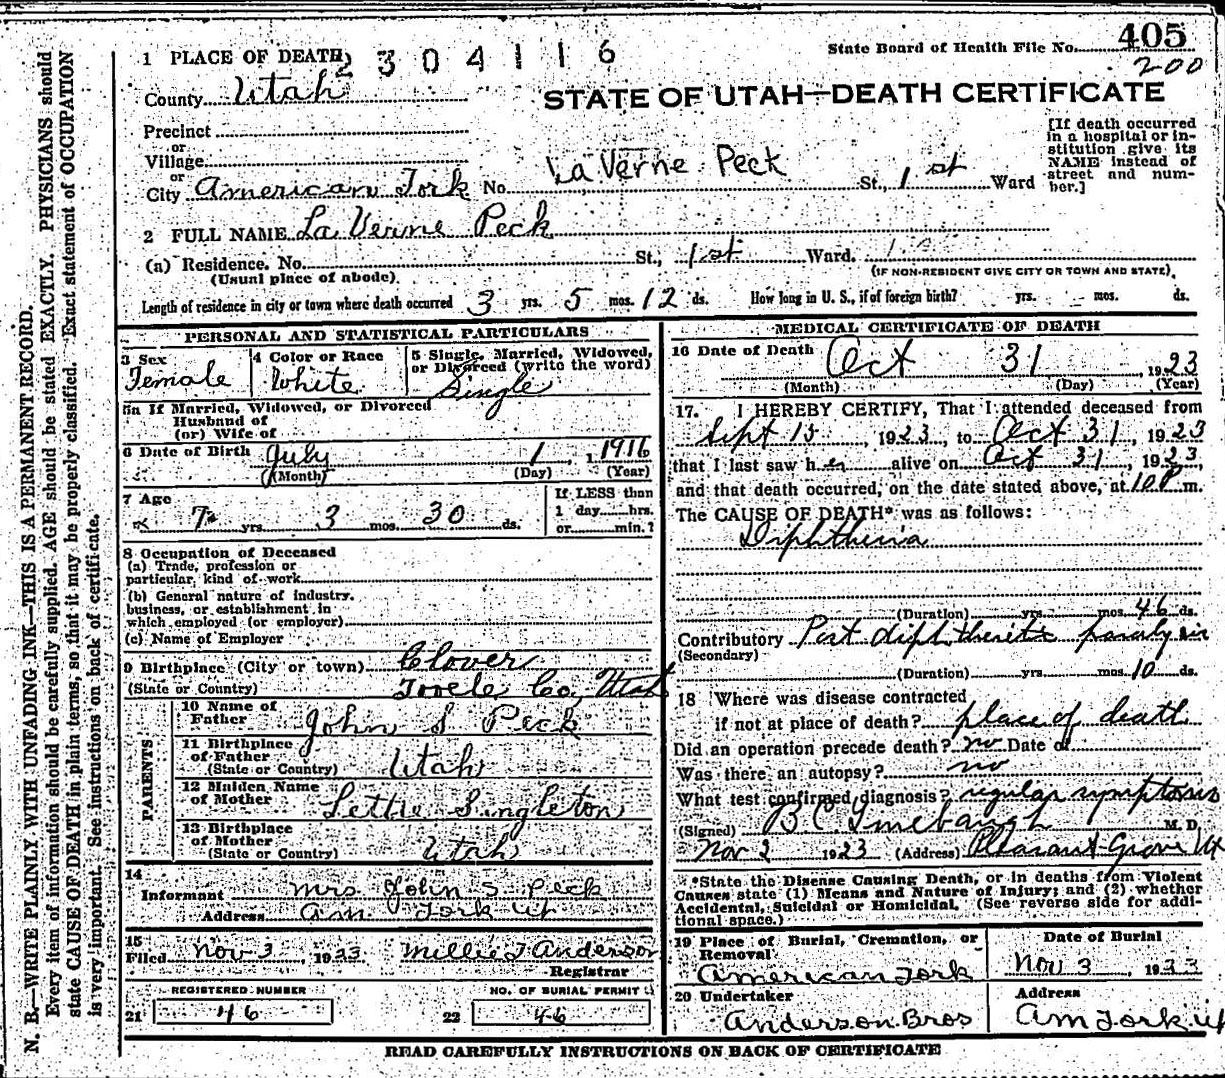 405
State Board of Health File No.
200
1 PLACE OF DEATH 2 3 0 4 1 1 6
County Utah
STATE OF UTAH—DEATH CERTIFICATE
Precinct
or
Village
or
City American Fork No. La Verne Peck St., 1st Ward
[If death occurred
in a hospital or in-
stitution give its
NAME instead of
street and num-
ber.]
2 FULL NAME La Verne Peck
(a) Residence. No. St., 1st Ward.
(Usual place of abode)
(IF NON-RESIDENT GIVE CITY OR TOWN AND STATE)
Length of residence in city or town where death occurred 3 yrs. 5 mos. 12 ds. How long in U. S., if of foreign birth? yrs. mos. ds.
PERSONAL AND STATISTICAL PARTICULARS
3 Sex 4 Color or Race 5 Single, Married, Widowed,
or Divorced (write the word)
Female White Single
5a If Married, Widowed, or Divorced
Husband of
(or) Wife of
6 Date of Birth July 1, 1916
(Month) (Day) (Year)
7 Age
7 yrs. 3 mos. 30 ds.
If LESS than
1 day hrs.
or min.?
8 Occupation of Deceased
(a) Trade, profession or
particular, kind of work
(b) General nature of industry,
business, or establishment in
which employed (or employer)
(c) Name of Employer
9 Birthplace (City or town) Clover
(State or Country) Tooele Co, Utah
PARENTS
10 Name of
Father John S Peck
11 Birthplace
of Father
(State or Country) Utah
12 Maiden Name
of Mother Lettie Singleton
13 Birthplace
of Mother
(State or Country) Utah
14
Informant Mrs John S Peck
Address Am Fork Ut
15
Filed Nov 3, 1923 Millie T Anderson
Registrar
REGISTERED NUMBER NO. OF BURIAL PERMIT
21 46 22 46
MEDICAL CERTIFICATE OF DEATH
16 Date of Death Oct 31, 1923
(Month) (Day) (Year)
17. I HEREBY CERTIFY, That I attended deceased from
Sept 15, 1923, to Oct 31, 1923
that I last saw her alive on Oct 31, 1923,
and that death occurred, on the date stated above, at 10 P m.
The CAUSE OF DEATH* was as follows:
Diphtheria
(Duration) yrs. mos. 46 ds.
Contributory Post diphtheritic paralysis
(Secondary)
(Duration) yrs. mos. 10 ds.
18 Where was disease contracted
if not at place of death? place of death
Did an operation precede death? no Date of
Was there an autopsy? no
What test confirmed diagnosis? regular symptoms
(Signed) B C Linebaugh M. D.
Nov 2 1923 (Address) Pleasant Grove Ut
*State the Disease Causing Death, or in deaths from Violent
Causes state (1) Means and Nature of Injury; and (2) whether
Accidental, Suicidal or Homicidal. (See reverse side for addi-
tional space.)
19 Place of Burial, Cremation, or
Removal
American Fork
Date of Burial
Nov 3, 1923
20 Undertaker
Anderson Bros
Address
Am Fork Ut
READ CAREFULLY INSTRUCTIONS ON BACK OF CERTIFICATE
N. B.—WRITE PLAINLY WITH UNFADING INK—THIS IS A PERMANENT RECORD.
Every item of information should be carefully supplied. AGE should be stated EXACTLY. PHYSICIANS should
state CAUSE OF DEATH in plain terms, so that it may be properly classified. Exact statement of OCCUPATION
is very important. See instructions on back of certificate.